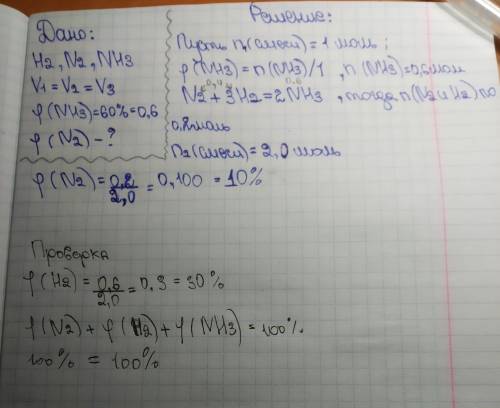 Дано:
H2, N2, NH3
V1 = V2 = V3
φ(NH3)=60%=0,6
φ(N2) - ?
Решение:
Пусть n(смеси) = 1 моль;
φ(NH3) = n(NH3)/1, n(NH3)=0,6моль
N2 + 3H2 = 2NH3, тогда n(N2 и H2) по
0,2моль
n2(смеси) = 2,0 моль
φ(N2) = 0,2/2,0 = 0,100 = 10%
Проверка
φ(H2) = 0,6/2,0 = 0,3 = 30%
φ(N2) + φ(H2) + φ(NH3) = 100%
100% = 100%